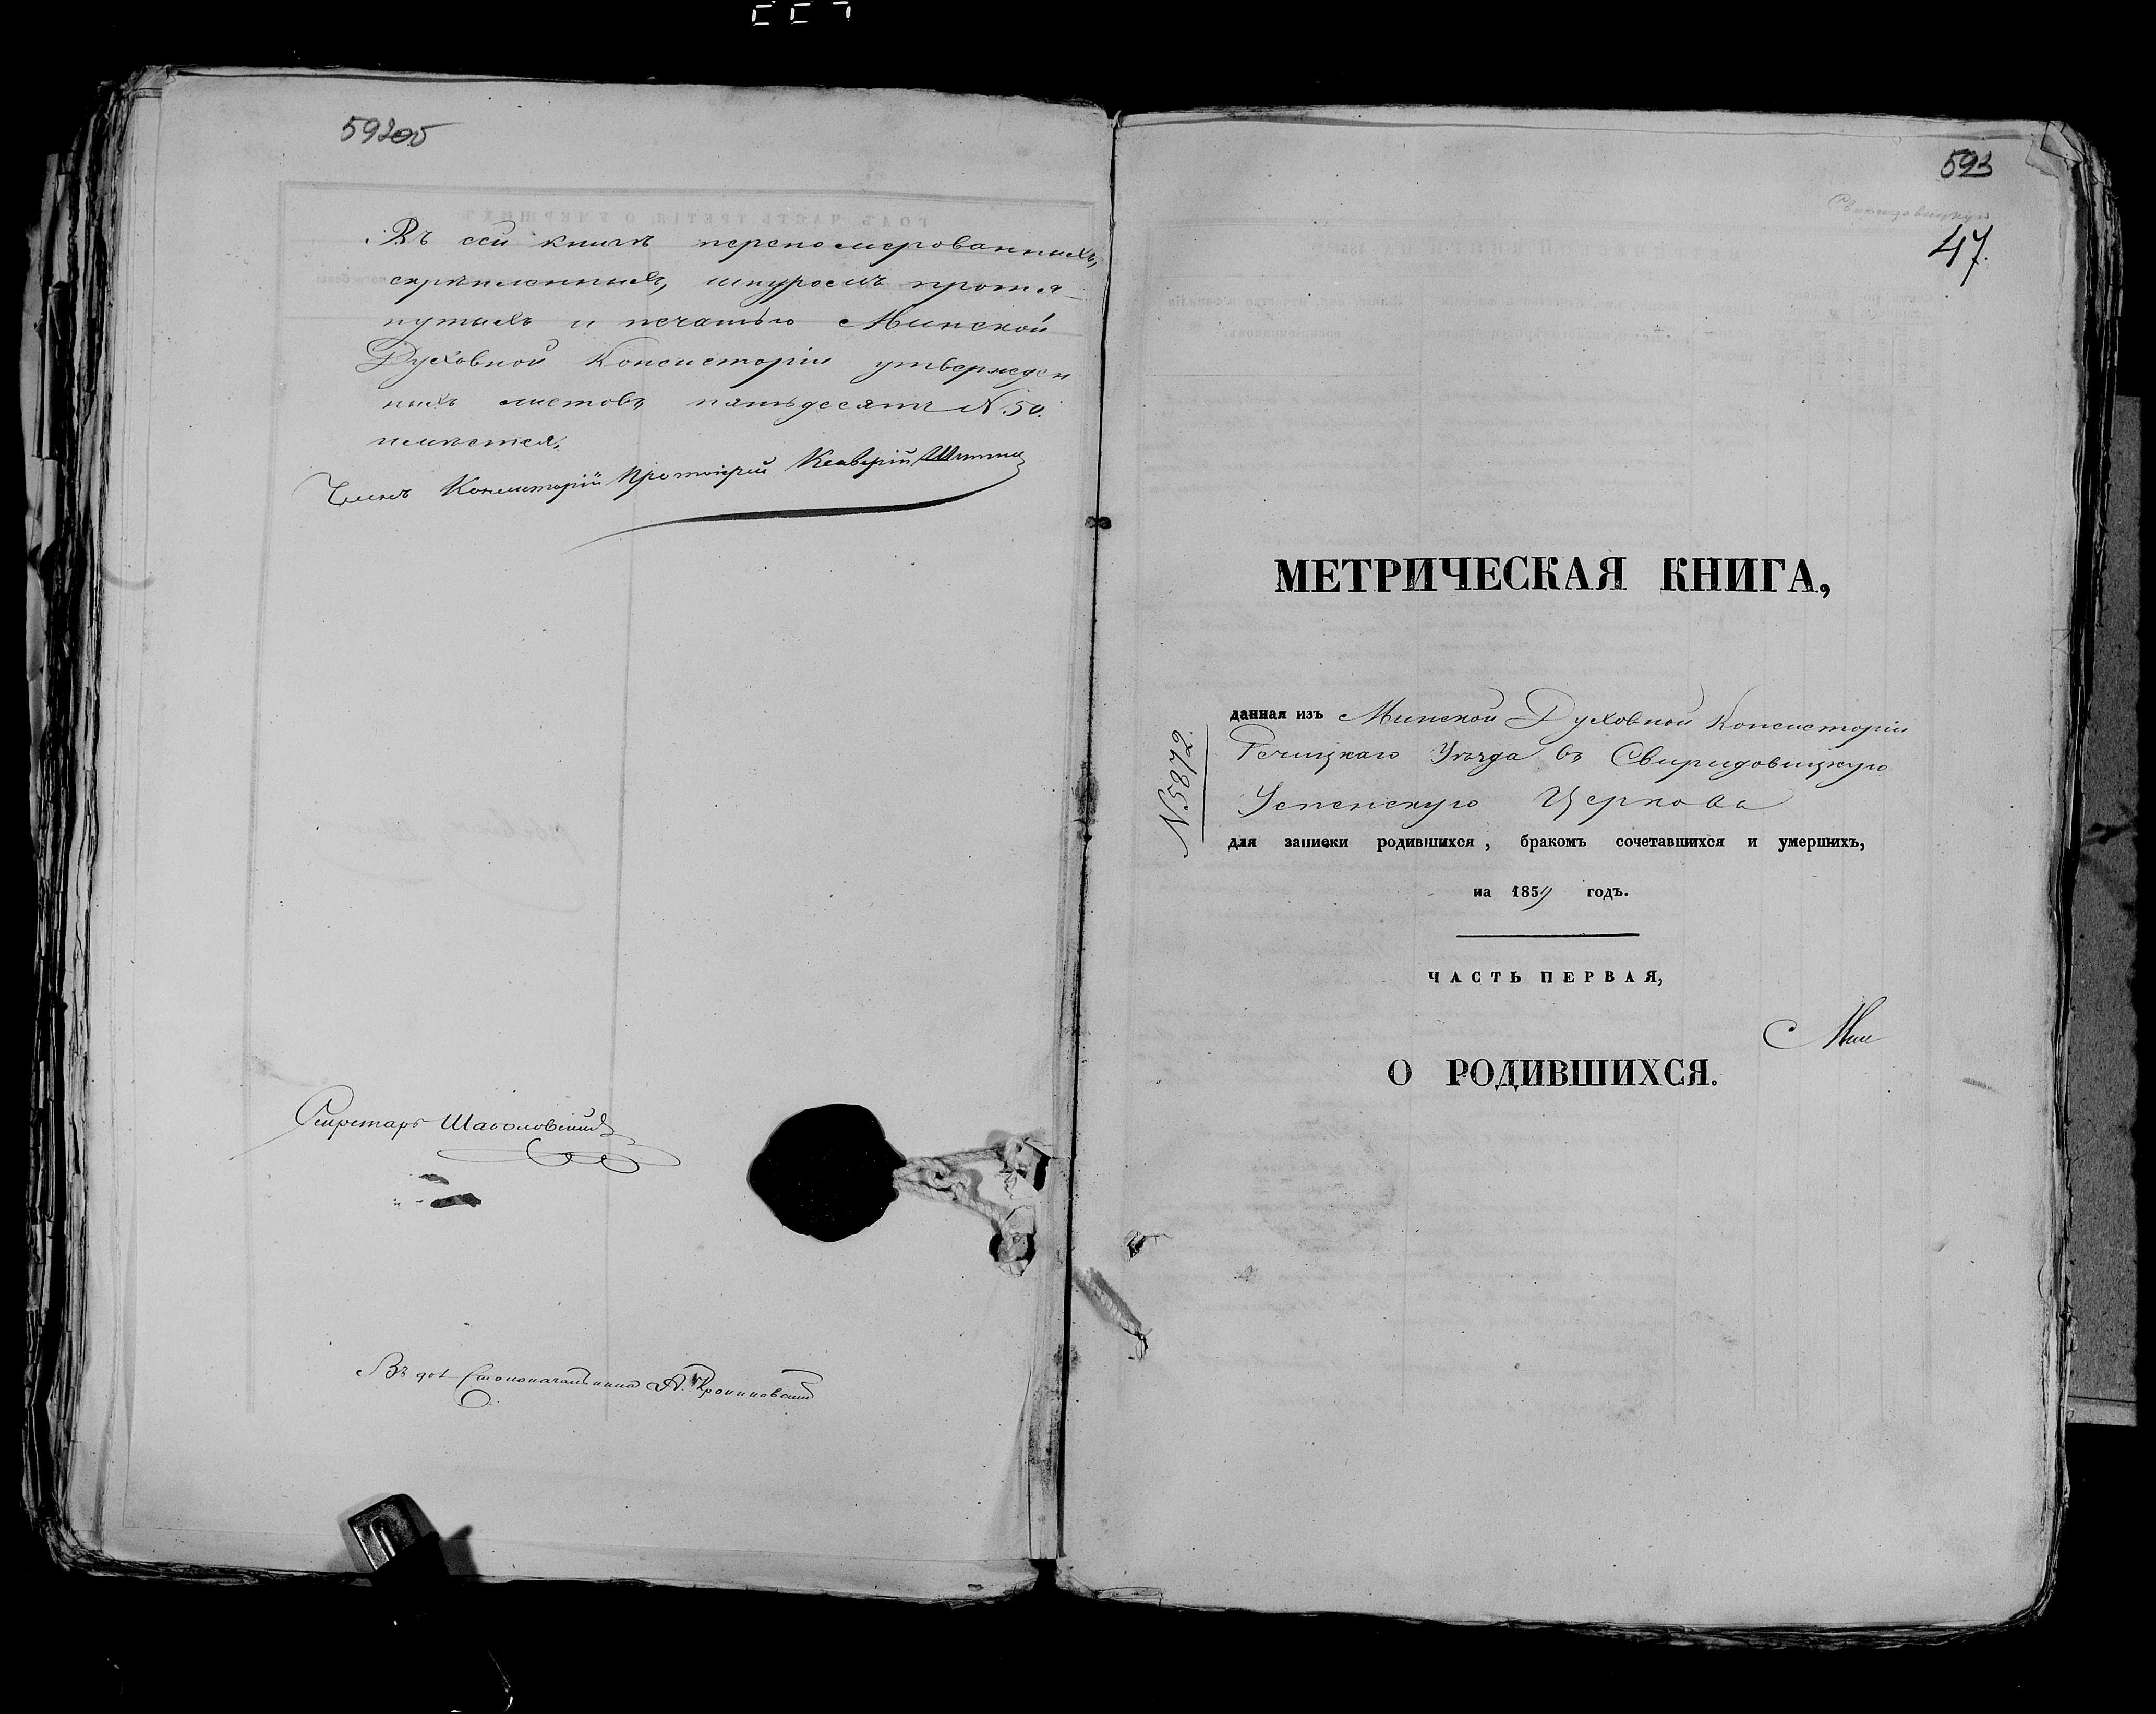 592об
Въ сей книгѣ перенумерованныхъ,
скрѣпленныхъ, шнуромъ протя-
нутыхъ и печатью Минской
Духовной Консисторіи утвержден
ныхъ листовъ пятьдесятъ N. 50.
имѣется.
Членъ Консисторіи Протоіерей Ксаверій
Секретарь
Въ дол Столоначальника А.
593
Свиридовицкая
47.
МЕТРИЧЕСКАЯ КНИГА,
данная изъ Минской Духовной Консисторіи
Речицкаго Уѣзда въ Свиридовицкую
Успенскую Церковь
N5872.
для записки родившихся, бракомъ сочетавшихся и умершихъ,
на 1859 годъ.
ЧАСТЬ ПЕРВАЯ,
О РОДИВШИХСЯ.